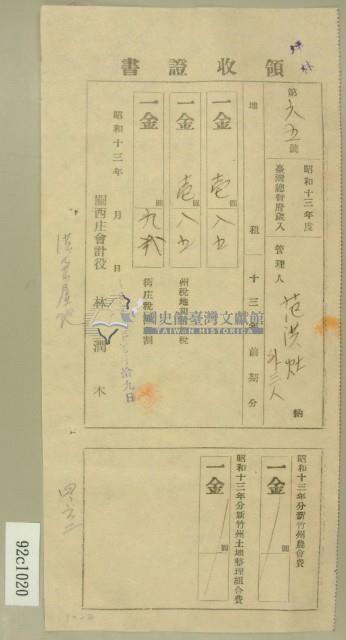 坪林
領收證書
第六五號
昭和十三年度
臺灣總督府歲入
管理人
范洪灶
外三人
納
地租十三年前期分
一金 壱圓八五
一金 壱圓八五
州稅地租
一金 圓九貳
街庄稅
割
昭和十三年 月 日
拾九日
關西庄會計役 林潤木
國史館臺灣文獻館
TAIWAN HISTORICA
昭和十三年分新竹州農會費
一金 圓
昭和十三年分新竹州土地整理組合費
一金 圓
92c1020